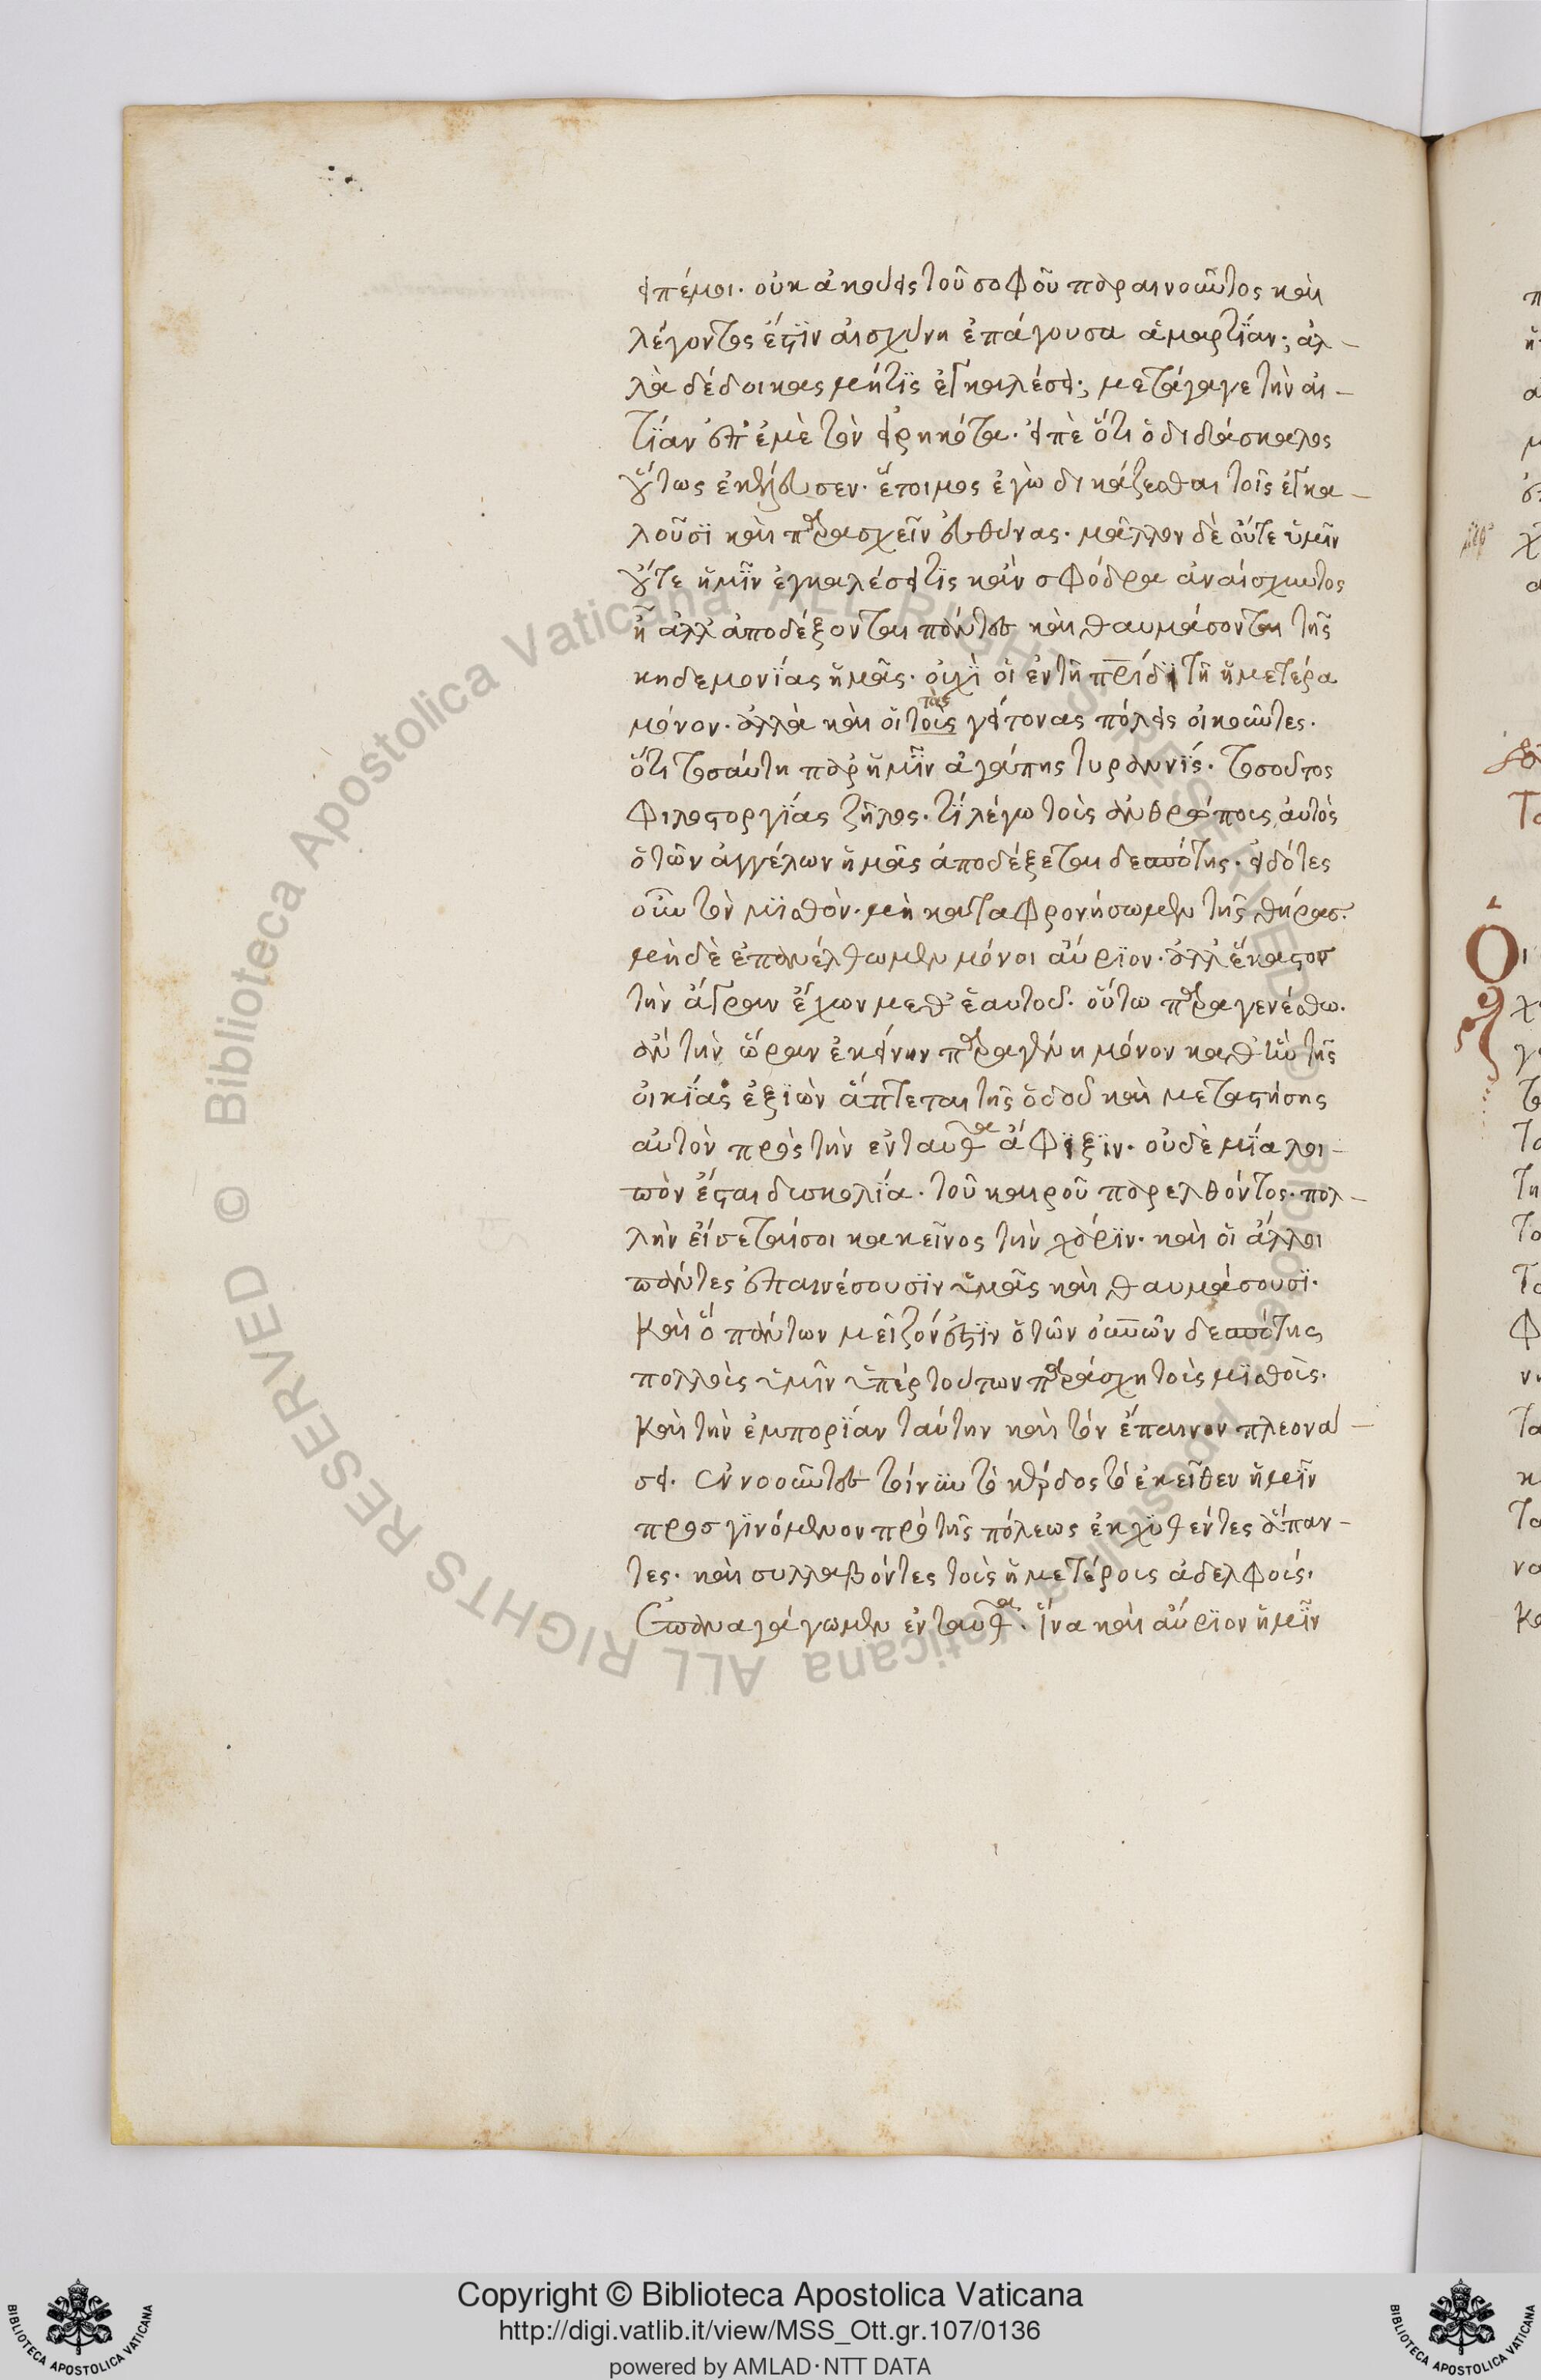 εἰπέ μοι. οὐκ ἀκούεις τοῦ σοφοῦ παραινοῦντος καὶ
λέγοντος ἔστιν αἰσχύνη ἐπάγουσα ἁμαρτίαν; ἀλ-
λὰ δέδοικας μήτις ἐγκαλέσει; μετάγαγε τὴν αἰ-
τίαν ἐπ' ἐμὲ τὸν εἰρηκότα. εἰπὲ ὅτι ὁ διδάσκαλος
οὕτως ἐκέλευσεν. ἕτοιμος ἐγὼ δικάζεσθαι τοῖς ἐγκα-
λοῦσι καὶ παρασχεῖν εὐθύνας. μᾶλλον δὲ οὔτε ὑμῖν
οὔτε ἡμῖν ἐγκαλέσει τις κἂν σφόδρα ἀναίσχυντος
ᾖ ἀλλ' ἀποδέξονται πάντες καὶ θαυμάσονται τῆς
κηδεμονίας ἡμᾶς. οὐχὶ οἱ ἐν τῇ πρίδι τῇ ἡμετέρα
μόνον. ἀλλὰ καὶ οἱ τοὺς γείτονας πόλεις οἰκοῦντες.
τὰς
ὅτι τοσαύτη παρ' ἡμῖν ἀγάπης τυραννίς. τοσοῦτος
φιλοστοργίας ζῆλος. τί λέγω τοὺς ἀνθρώπους αὐτὸς
ὁ τῶν ἀγγέλων ἡμᾶς ἀποδέξεται δεσπότης. εἰδότες
οὖν τὸν μισθὸν. μὴ καταφρονήσωμεν τῆς θήρας.
μὴ δὲ ἐπανέλθωμεν μόνοι αὔριον. ἀλλ' ἕκαστος
τὴν ἄγραν ἔχων μεθ' ἑαυτοῦ. οὕτω παραγενέσθω.
ἂν τὴν ὥραν ἐκείνην παραγένη μόνον καθ' ἣν τῆς
οἰκίας ἐξιὼν ἅπτεται τῆς ὁδοῦ καὶ μεταστήσης
αὐτὸν πρὸς τὴν ἐνταῦθα ἄφιξιν. οὐδὲ μία λοι-
πὸν ἔσται δυσκολία. τοῦ καιροῦ παρελθόντος. πολ-
λὴν εἴσεταί σοι κακεῖνος τὴν χάριν. καὶ οἱ ἄλλοι
πάντες ἐπαινέσουσιν ὑμᾶς καὶ θαυμάσουσι.
Καὶ ὃ πάντων μεῖζόν ἐστιν ὁ τῶν οὐνῶν δεσπότης
πολλοὺς ὑμῖν ὑπὲρ τούτων παράσχη τοὺς μισθοὺς.
Καὶ τὴν ἐμπορίαν ταύτην καὶ τὸν ἔπαινον πλεονά-
σει. ἐννοοῦντες τοίνυν τὸ κέρδος τὸ ἐκεῖθεν ἡμῖν
προσγινόμενον πρὸ τῆς πόλεως ἐκχυθέντες ἅπαν-
τες. καὶ συλλαβόντες τοὺς ἡμετέρους ἀδελφούς.
ἐπαναγάγωμεν ἐνταῦθα. ἵνα καὶ αὔριον ἡμῖν
Copyright © Biblioteca Apostolica Vaticana
http://digi.vatlib.it/view/MSS_Ott.gr.107/0136
powered by AMLAD·NTT DATA